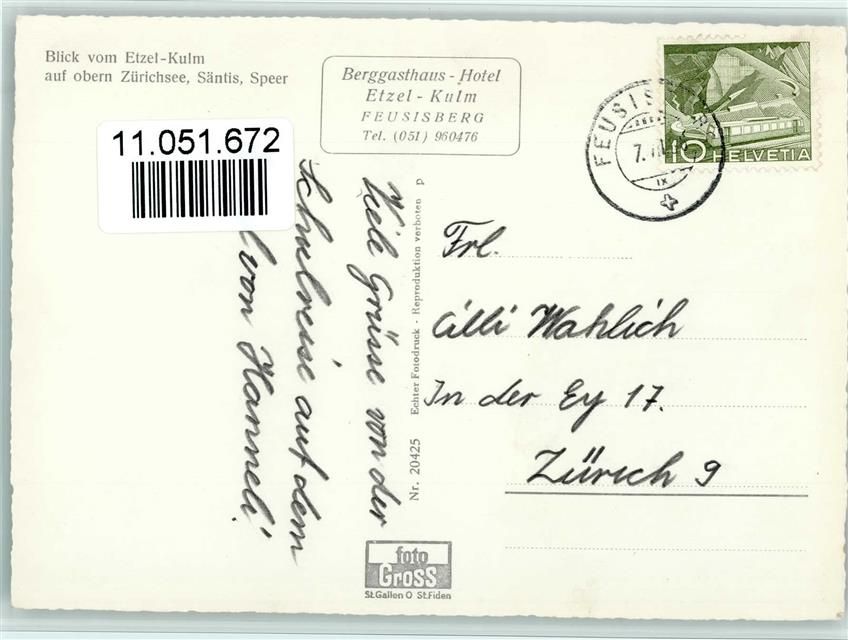 Blick vom Etzel-Kulm
auf obern Zürichsee, Säntis, Speer
Berggasthaus - Hotel
Etzel - Kulm
FEUSISBERG
Tel. (051) 960476
11.051.672
FEUSISBERG
7.
IX
10 HELVETIA
Viele Grüsse von der
Schulreise auf dem
von Hanneli!
Nr. 20425 Echter Fotodruck - Reproduktion verboten p
Frl.
Cilli Wahlich
In der Ey 17.
Zürich 9
foto
GROSS
St.Gallen O St.Fiden